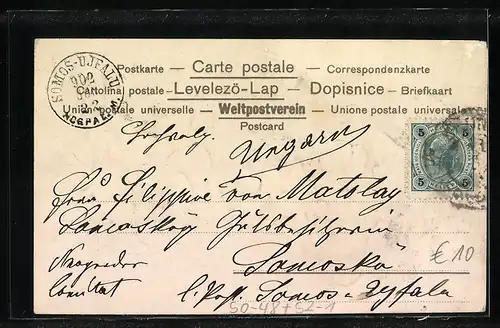 Postkarte – Carte postale – Correspondenzkarte
Cartolina postale – Levelezö-Lap – Dopisnice – Briefkaart
Union postale universelle – Weltpostverein – Unione postale universale
Postcard
SOMOS-UJFALU
902
5
5
5
5
Hochwolg.
Ungarn
Frau Filippine von Matolay
Somoskőy Gutsbesitzerin
Neograder Somoskő
Comitat l. Post. Somos-Ujfalu
€10
50-48+52-1